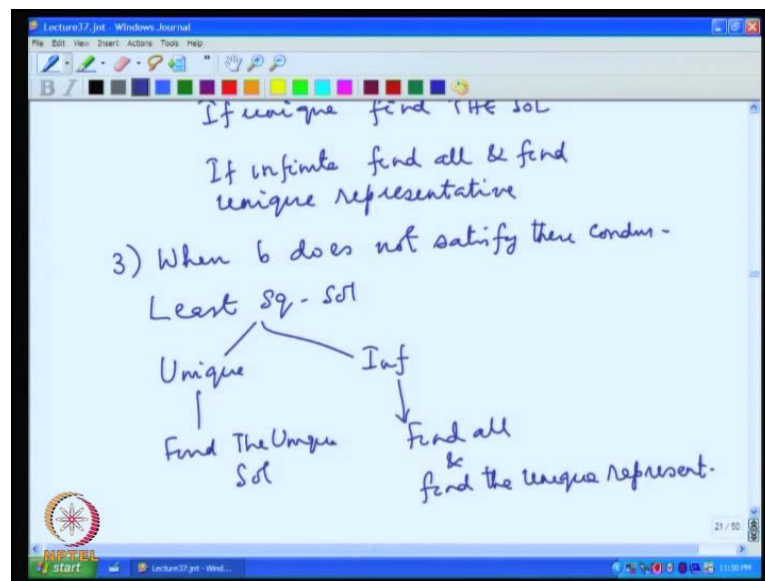 Lecture37.jnt - Windows Journal
File Edit View Insert Actions Tools Help
B I
If unique find THE SOL
If infinite find all & find
unique representative
3) When b does not satisfy these condns.
Least Sq. Sol
Unique Inf
Find The Unique Find all
Sol &
find the unique represent.
21 / 50
NPTEL
start Lecture37.jnt - Wind... 11:50 PM